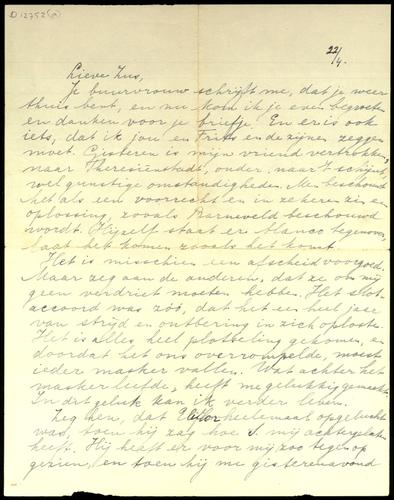 D 12752 (a)
22/4.
Lieve Zus,
Je buurvrouw schrijft me, dat je weer
thuis bent, en nu kom ik je even begroeten
en danken voor je briefje. En er is ook
iets, dat ik jou en Frits en de zijnen zeggen
moet. Gisteren is mijn vriend vertrokken,
naar Theresienstadt, onder, naar 't schijnt,
wel gunstige omstandigheden. Men beschouwt
het als een voorrecht en in zekere zin een
oplossing, zooals Barneveld beschouwd
wordt. Hijzelf staat er blanco tegenover,
laat het komen zooals het komt.
Het is misschien een afscheid voorgoed.
Maar zeg aan de anderen, dat ze om mij
geen verdriet moeten hebben. Het slot-
accoord was zóó, dat het een heel jaar
van strijd en ontbering in zich oploste.
Het is alles heel plotseling gekomen, en
doordat het ons overrompelde, moest
ieder masker vallen. Wat achter het
masker leefde, heeft me gelukkig gemaakt.
In dit geluk kan ik verder leven.
Zeg hen, dat heelemaal opgelucht
was, toen hij zag hoe S. mij achtergelaten
heeft. Hij heeft er voor mij zoo tegen op
gezien, en toen hij me gisterenavond